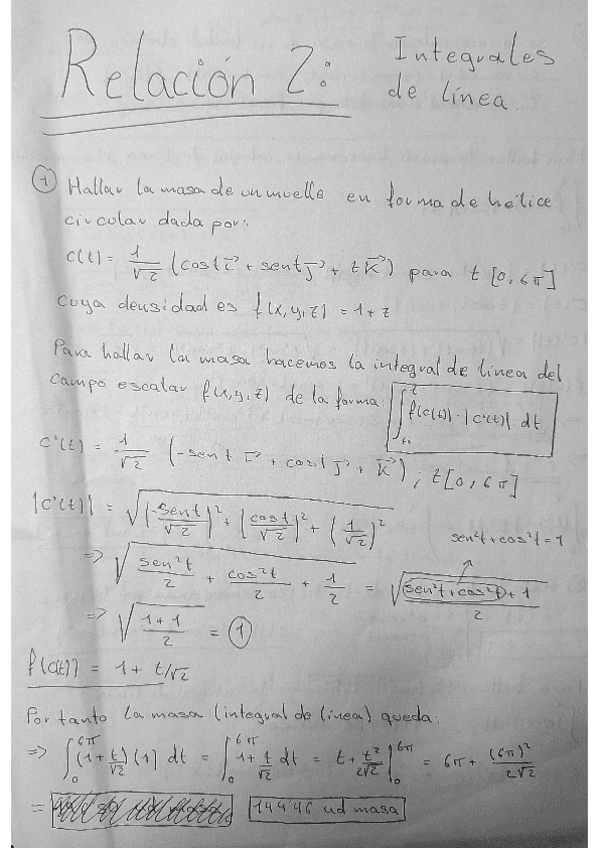 Relación 2: Integrales
de línea.
① Hallar la masa de un muelle en forma de hélice
circular dada por:
c(t) = 1/√2 (cost i⃗ + sent j⃗ + t k⃗) para t [0, 6π]
cuya densidad es f(x,y,z) = 1+z
Para hallar la masa hacemos la integral de línea del
campo escalar f(x,y,z) de la forma: ∫_{t₀}^{t} f(c(t)) · |c'(t)| dt
c'(t) = 1/√2 (-sent i⃗ + cost j⃗ + k⃗) ; t [0, 6π]
|c'(t)| = √((-sent/√2)² + (cost/√2)² + (1/√2)²)
sen²t + cos²t = 1
=> √(sen²t/2 + cos²t/2 + 1/2) = √((sen²t + cos²t + 1)/2)
=> √((1+1)/2) = ①
f(c(t)) = 1 + t/√2
Por tanto la masa (integral de línea) queda:
=> ∫₀^{6π} (1 + t/√2) (1) dt = ∫₀^{6π} 1 + t/√2 dt = t + t²/2√2 |₀^{6π} = 6π + (6π)²/2√2
= 144'46 ud masa